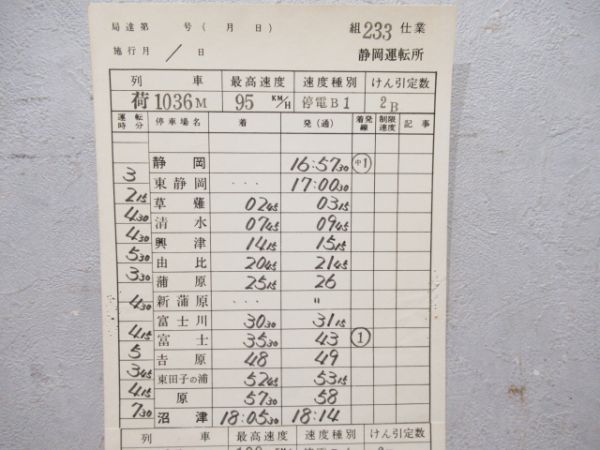 局達第　号(　月　日)　組233仕業
施行月／日　静岡運転所
列　車　最高速度　速度種別　けん引定数
荷1036M　95KM/H　停電B1　2B
運転時分　停車場名　着　発(通)　着発線　制限速度　記事
静岡　16:57 30　中1
3
東静岡　・・・　17:00 30
2 15
草薙　02 45　03 15
4 30
清水　07 45　09 45
4 30
興津　14 15　15 15
5 30
由比　20 45　21 45
3 30
蒲原　25 15　26
新蒲原　・・・　〃
4 30
富士川　30 30　31 15
4 15
富士　35 30　43　1
5
吉原　48　49
3 45
東田子の浦　52 45　53 15
4 15
原　57 30　58
7 30
沼津　18:05 30　18:14
列　車　最高速度　速度種別　けん引定数